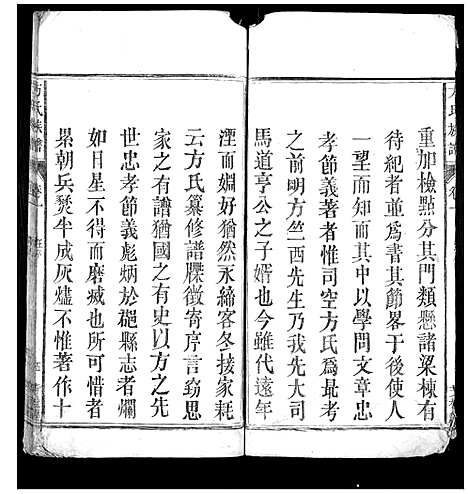 方氏族譜
卷一
重加檢點分其門類懸諸梁棟有
待紀者並爲書其節畧于後使人
一望而知而其中以學問文章忠
孝節義著者惟司空方氏爲最考
之前明方竺西先生乃我先大司
馬道亨公之子婿也今雖代遠年
湮而姻好猶然永締客冬接家耗
云方氏纂修譜牒徵寄序言窈思
家之有譜猶國之有史以方之先
世忠孝節義彪炳於禠縣志者爛
如日星不得而磨滅也所可惜者
累朝兵燹半成灰燼不惟著作十
方氏族譜
卷一